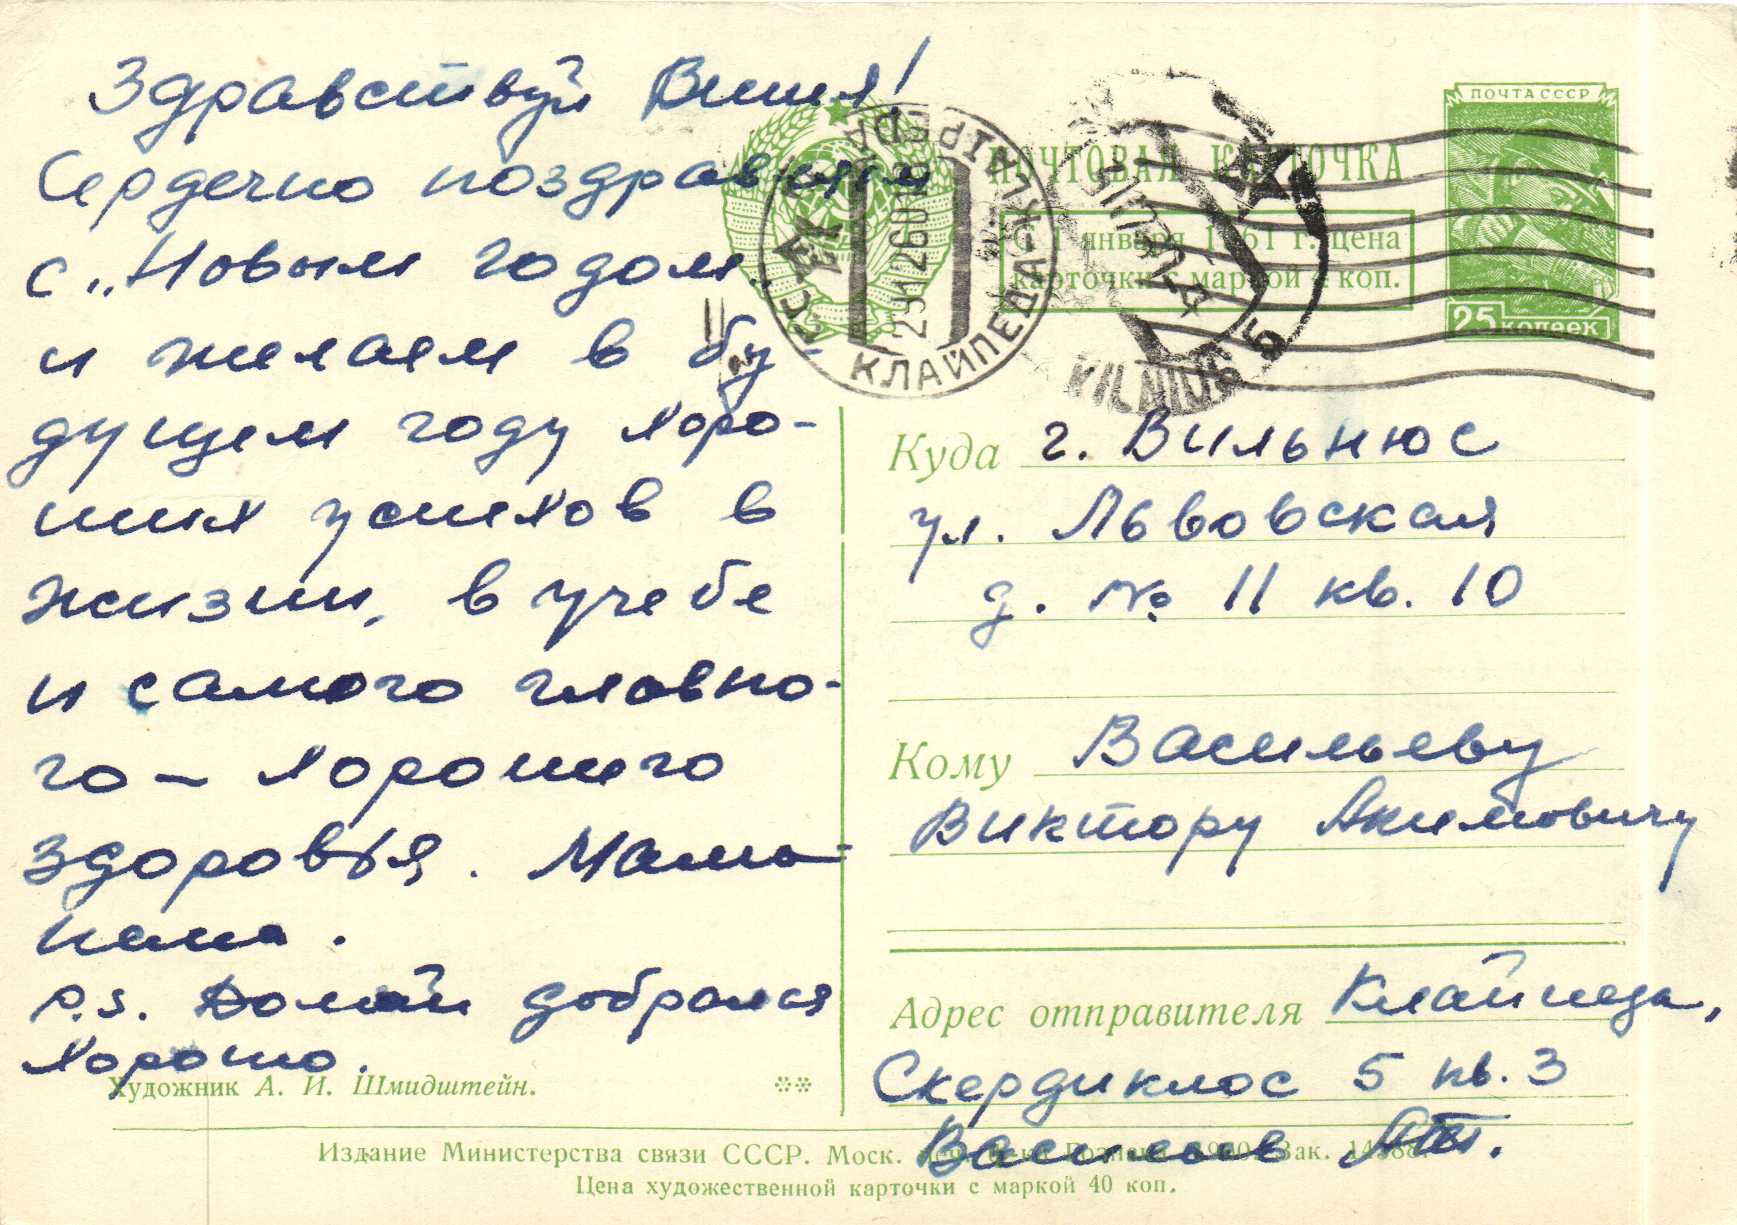 Здравствуй Витя!
Сердечно поздравляем
с „Новым годом
и желаем в бу-
дущем году хоро-
ших успехов в
жизни, в учебе
и самого главно-
го — хорошего
здоровья. Мама
папа.
P.S. Домой добрался
хорошо.
Художник А. И. Шмидштейн.
ПОЧТА СССР
25 копеек
ПОЧТОВАЯ КАРТОЧКА
С 1 января 1961 г. цена
карточки с маркой 4 коп.
KLAIPĖDA
СССР
291260
КЛАЙПЕДА
VILNIUS 5
Куда г. Вильнюс
ул. Львовская
д. № 11 кв. 10
Кому Васильеву
Виктору Акимовичу
Адрес отправителя Клайпеда,
Скердиклос 5 кв. 3
Васильев
Издание Министерства связи СССР. Моск. Зак.
Цена художественной карточки с маркой 40 коп.